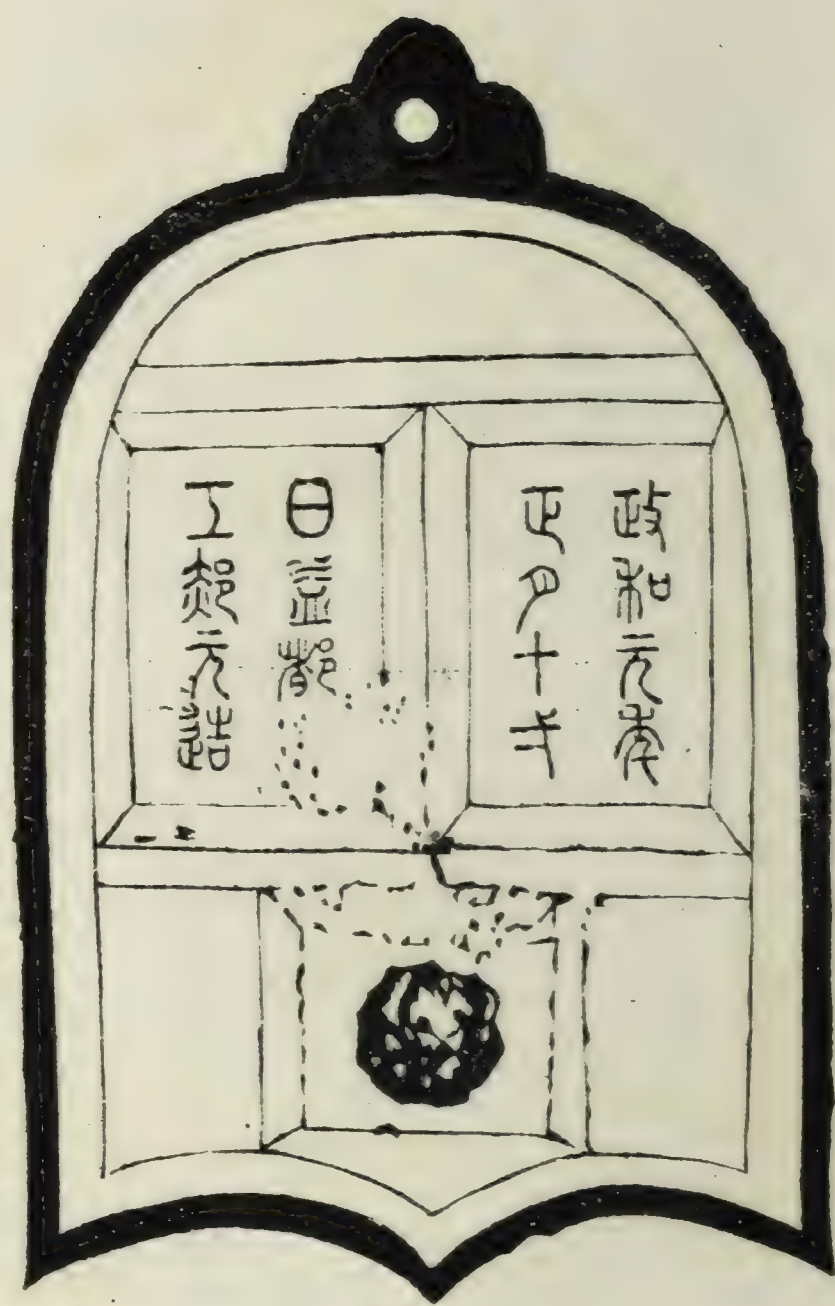 政和元年
正月十弌
日益都
工郝元造